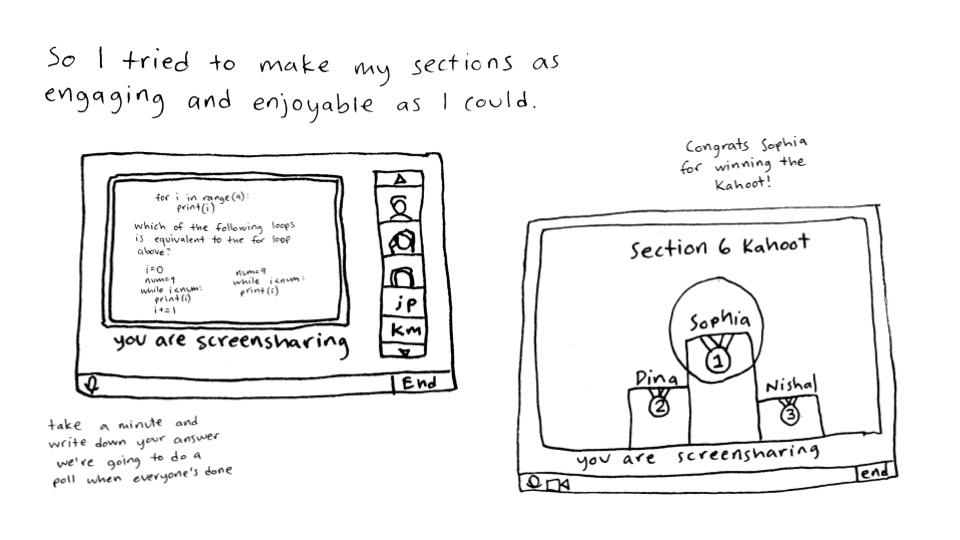 So I tried to make my sections as
engaging and enjoyable as I could.
for i in range(9):
print(i)
which of the following loops
is equivalent to the for loop
above?
i=0
num=9
while i<num:
print(i)
i+=1
num=9
while i<num:
print(i)
jp
km
you are screensharing
End
take a minute and
write down your answer
we're going to do a
poll when everyone's done
Congrats Sophia
for winning the
Kahoot!
Section 6 Kahoot
Sophia
1
Dina
2
Nishal
3
you are screensharing
end